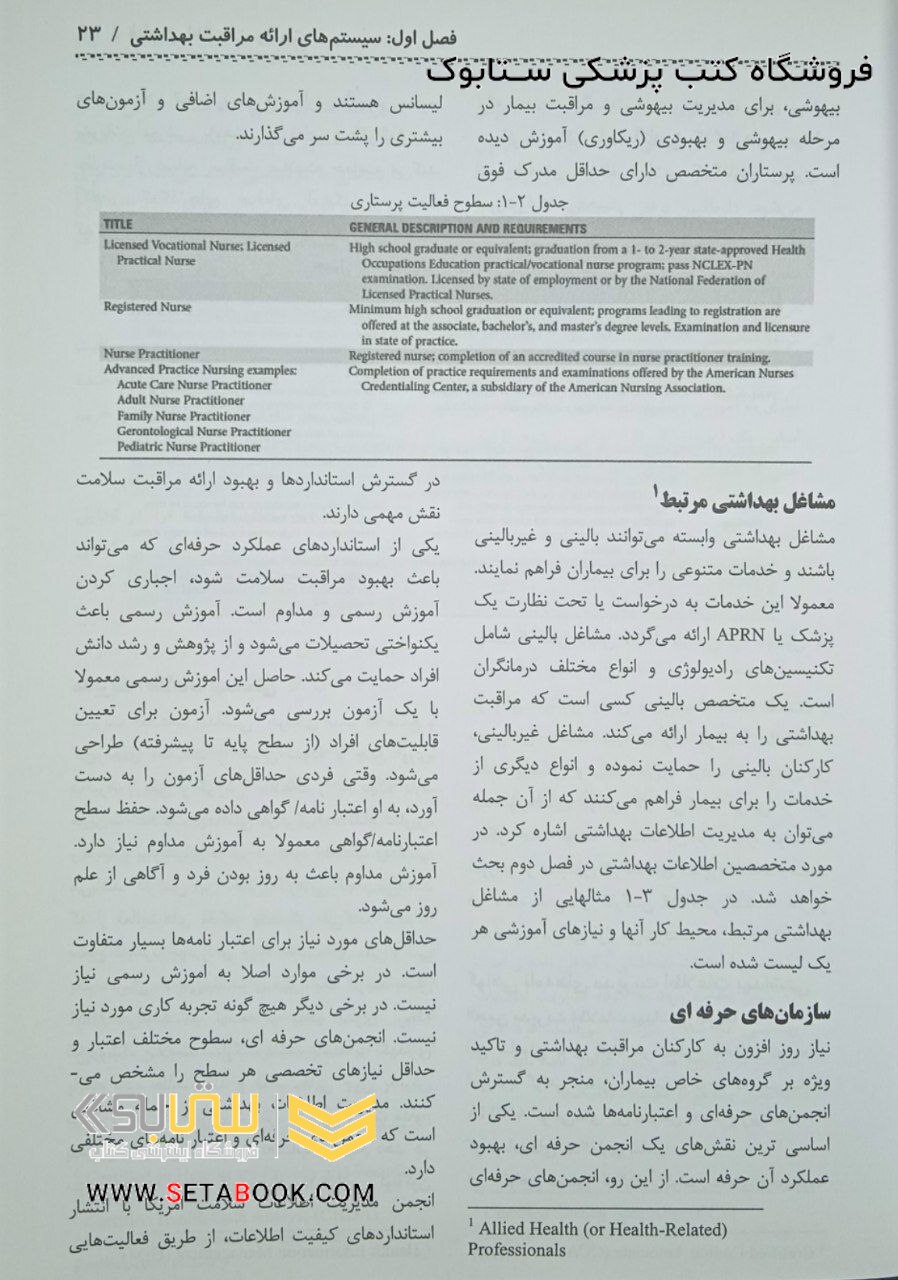 فصل اول: سیستم‌های ارائه مراقبت بهداشتی / ۲۳
فروشگاه کتب پزشکی ستابوک
بیهوشی، برای مدیریت بیهوشی و مراقبت بیمار در
مرحله بیهوشی و بهبودی (ریکاوری) آموزش دیده
است. پرستاران متخصص دارای حداقل مدرک فوق
لیسانس هستند و آموزش‌های اضافی و آزمون‌های
بیشتری را پشت سر می‌گذارند.
جدول ۲-۱: سطوح فعالیت پرستاری
TITLE GENERAL DESCRIPTION AND REQUIREMENTS
Licensed Vocational Nurse; Licensed
Practical Nurse
High school graduate or equivalent; graduation from a 1- to 2-year state-approved Health
Occupations Education practical/vocational nurse program; pass NCLEX-PN
examination. Licensed by state of employment or by the National Federation of
Licensed Practical Nurses.
Registered Nurse
Minimum high school graduation or equivalent; programs leading to registration are
offered at the associate, bachelor's, and master's degree levels. Examination and licensure
in state of practice.
Nurse Practitioner
Registered nurse; completion of an accredited course in nurse practitioner training.
Advanced Practice Nursing examples:
Acute Care Nurse Practitioner
Adult Nurse Practitioner
Family Nurse Practitioner
Gerontological Nurse Practitioner
Pediatric Nurse Practitioner
Completion of practice requirements and examinations offered by the American Nurses
Credentialing Center, a subsidiary of the American Nursing Association.
مشاغل بهداشتی مرتبط¹
مشاغل بهداشتی وابسته می‌توانند بالینی و غیربالینی
باشند و خدمات متنوعی را برای بیماران فراهم نمایند.
معمولا این خدمات به درخواست یا تحت نظارت یک
پزشک یا APRN ارائه می‌گردد. مشاغل بالینی شامل
تکنیسین‌های رادیولوژی و انواع مختلف درمانگران
است. یک متخصص بالینی کسی است که مراقبت
بهداشتی را به بیمار ارائه می‌کند. مشاغل غیربالینی،
کارکنان بالینی را حمایت نموده و انواع دیگری از
خدمات را برای بیمار فراهم می‌کنند که از آن جمله
می‌توان به مدیریت اطلاعات بهداشتی اشاره کرد. در
مورد متخصصین اطلاعات بهداشتی در فصل دوم بحث
خواهد شد. در جدول ۳-۱ مثالهایی از مشاغل
بهداشتی مرتبط، محیط کار آنها و نیازهای آموزشی هر
یک لیست شده است.
سازمان‌های حرفه ای
نیاز روز افزون به کارکنان مراقبت بهداشتی و تاکید
ویژه بر گروه‌های خاص بیماران، منجر به گسترش
انجمن‌های حرفه‌ای و اعتبارنامه‌ها شده است. یکی از
اساسی ترین نقش‌های یک انجمن حرفه ای، بهبود
عملکرد آن حرفه است. از این رو، انجمن‌های حرفه‌ای
¹ Allied Health (or Health-Related)
Professionals
در گسترش استانداردها و بهبود ارائه مراقبت سلامت
نقش مهمی دارند.
یکی از استانداردهای عملکرد حرفه‌ای که می‌تواند
باعث بهبود مراقبت سلامت شود، اجباری کردن
آموزش رسمی و مداوم است. آموزش رسمی باعث
یکنواختی تحصیلات می‌شود و از پژوهش و رشد دانش
افراد حمایت می‌کند. حاصل این اموزش رسمی معمولا
با یک آزمون بررسی می‌شود. آزمون برای تعیین
قابلیت‌های افراد (از سطح پایه تا پیشرفته) طراحی
می‌شود. وقتی فردی حداقل‌های آزمون را به دست
آورد، به او اعتبار نامه/ گواهی داده می‌شود. حفظ سطح
اعتبارنامه/گواهی معمولا به آموزش مداوم نیاز دارد.
آموزش مداوم باعث به روز بودن فرد و آگاهی از علم
روز می‌شود.
حداقل‌های مورد نیاز برای اعتبار نامه‌ها بسیار متفاوت
است. در برخی موارد اصلا به اموزش رسمی نیاز
نیست. در برخی دیگر هیچ گونه تجربه کاری مورد نیاز
نیست. انجمن‌های حرفه ای، سطوح مختلف اعتبار و
حداقل نیازهای تخصصی هر سطح را مشخص می-
کنند. مدیریت اطلاعات بهداشتی از جمله
است که و اعتبار نامه‌های مختلفی
دارد.
انجمن مدیریت اطلاعات سلامت آمریکا با انتشار
استانداردهای کیفیت اطلاعات، از طریق فعالیت‌هایی
ستابوک
فروشگاه اینترنتی کتاب
WWW.SETABOOK.COM